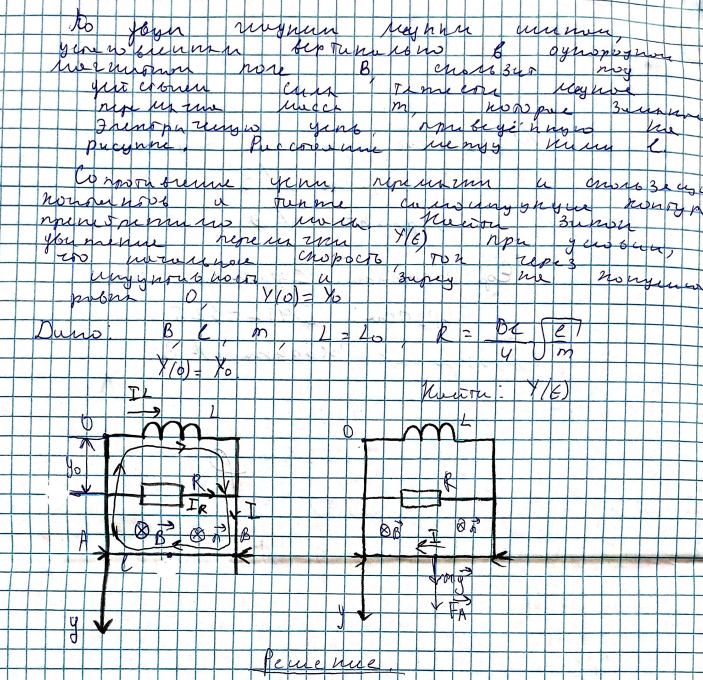 По двум гладким медным шинам,
установленным вертикально в однородном
магнитном поле B, скользит под
действием силы тяжести медная
перемычка масса m, которое замыкает
Электрическую цепь, приведённую на
рисунке. Расстояние между ними l
Сопротивление цепи, перемычки и скользящих
контактов а также самоиндукция контура
пренебрежимо малы. Найти закон
движение перемычки Y(t) при условии,
что начальное скорость, ток через
индуктивность и заряд на
равны 0, Y(0) = Y₀
Дано: B, l, m, L = L₀, R = Bl/4 √(l/m)
Y(0) = Y₀
Найти: Y(t)
I_L
O L O L
y₀ R R
I_R I
A ⊗B⃗ ⊗n⃗ B ⊗B⃗ I ⊗n⃗
l
mg⃗
y y F⃗_A
Решение.